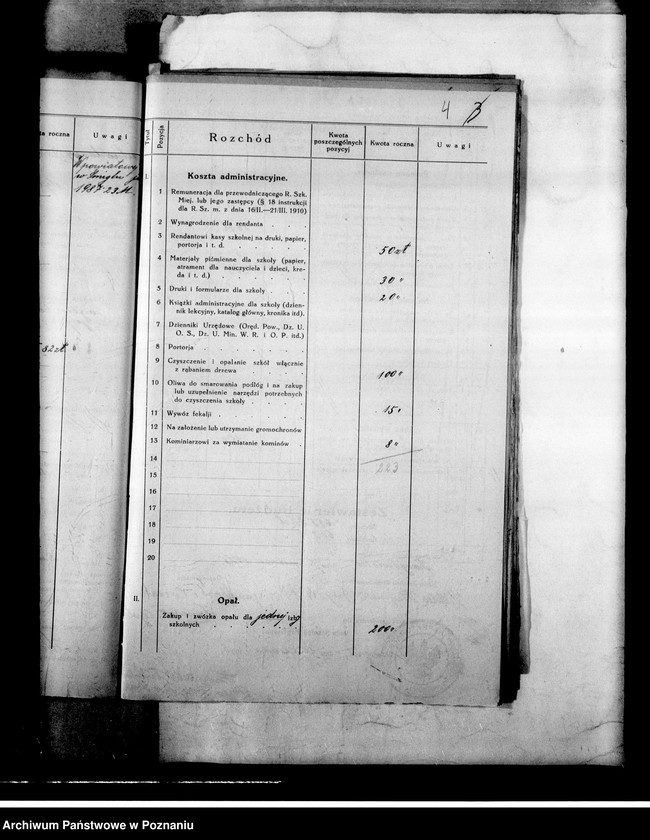 4
ta roczna
Uwagi
1937-23.
82 zł
Tytuł
Pozycja
Rozchód
Kwota poszczególnych pozycyj
Kwota roczna
Uwagi
I.
Koszta administracyjne.
1 Remuneracja dla przewodniczącego R. Szk.
Miej. lub jego zastępcy (§ 18 instrukcji
dla R. Sz. m. z dnia 16/II.—21/III. 1910)
2 Wynagrodzenie dla rendanta
3 Rendantowi kasy szkolnej na druki, papier,
portorja i t. d. 50 zł
4 Materjały piśmienne dla szkoły (papier,
atrament dla nauczyciela i dzieci, kre-
da i t. d.) 30 "
5 Druki i formularze dla szkoły 20 "
6 Książki administracyjne dla szkoły (dzien-
nik lekcyjny, katalog główny, kronika itd).
7 Dzienniki Urzędowe (Oręd. Pow., Dz. U.
O. S., Dz. U. Min. W. R. i O. P. itd.)
8 Portorja
9 Czyszczenie i opalanie szkół włącznie
z rąbaniem drzewa 100 "
10 Oliwa do smarowania podłóg i na zakup
lub uzupełnienie narzędzi potrzebnych
do czyszczenia szkoły 15 "
11 Wywóz fekalji
12 Na założenie lub utrzymanie gromochronów
13 Kominiarzowi za wymiatanie kominów 8 "
14 223
15
16
17
18
19
20
II.
Opał.
Zakup i zwózka opału dla jednej izby
szkolnych 200 "
Archiwum Państwowe w Poznaniu